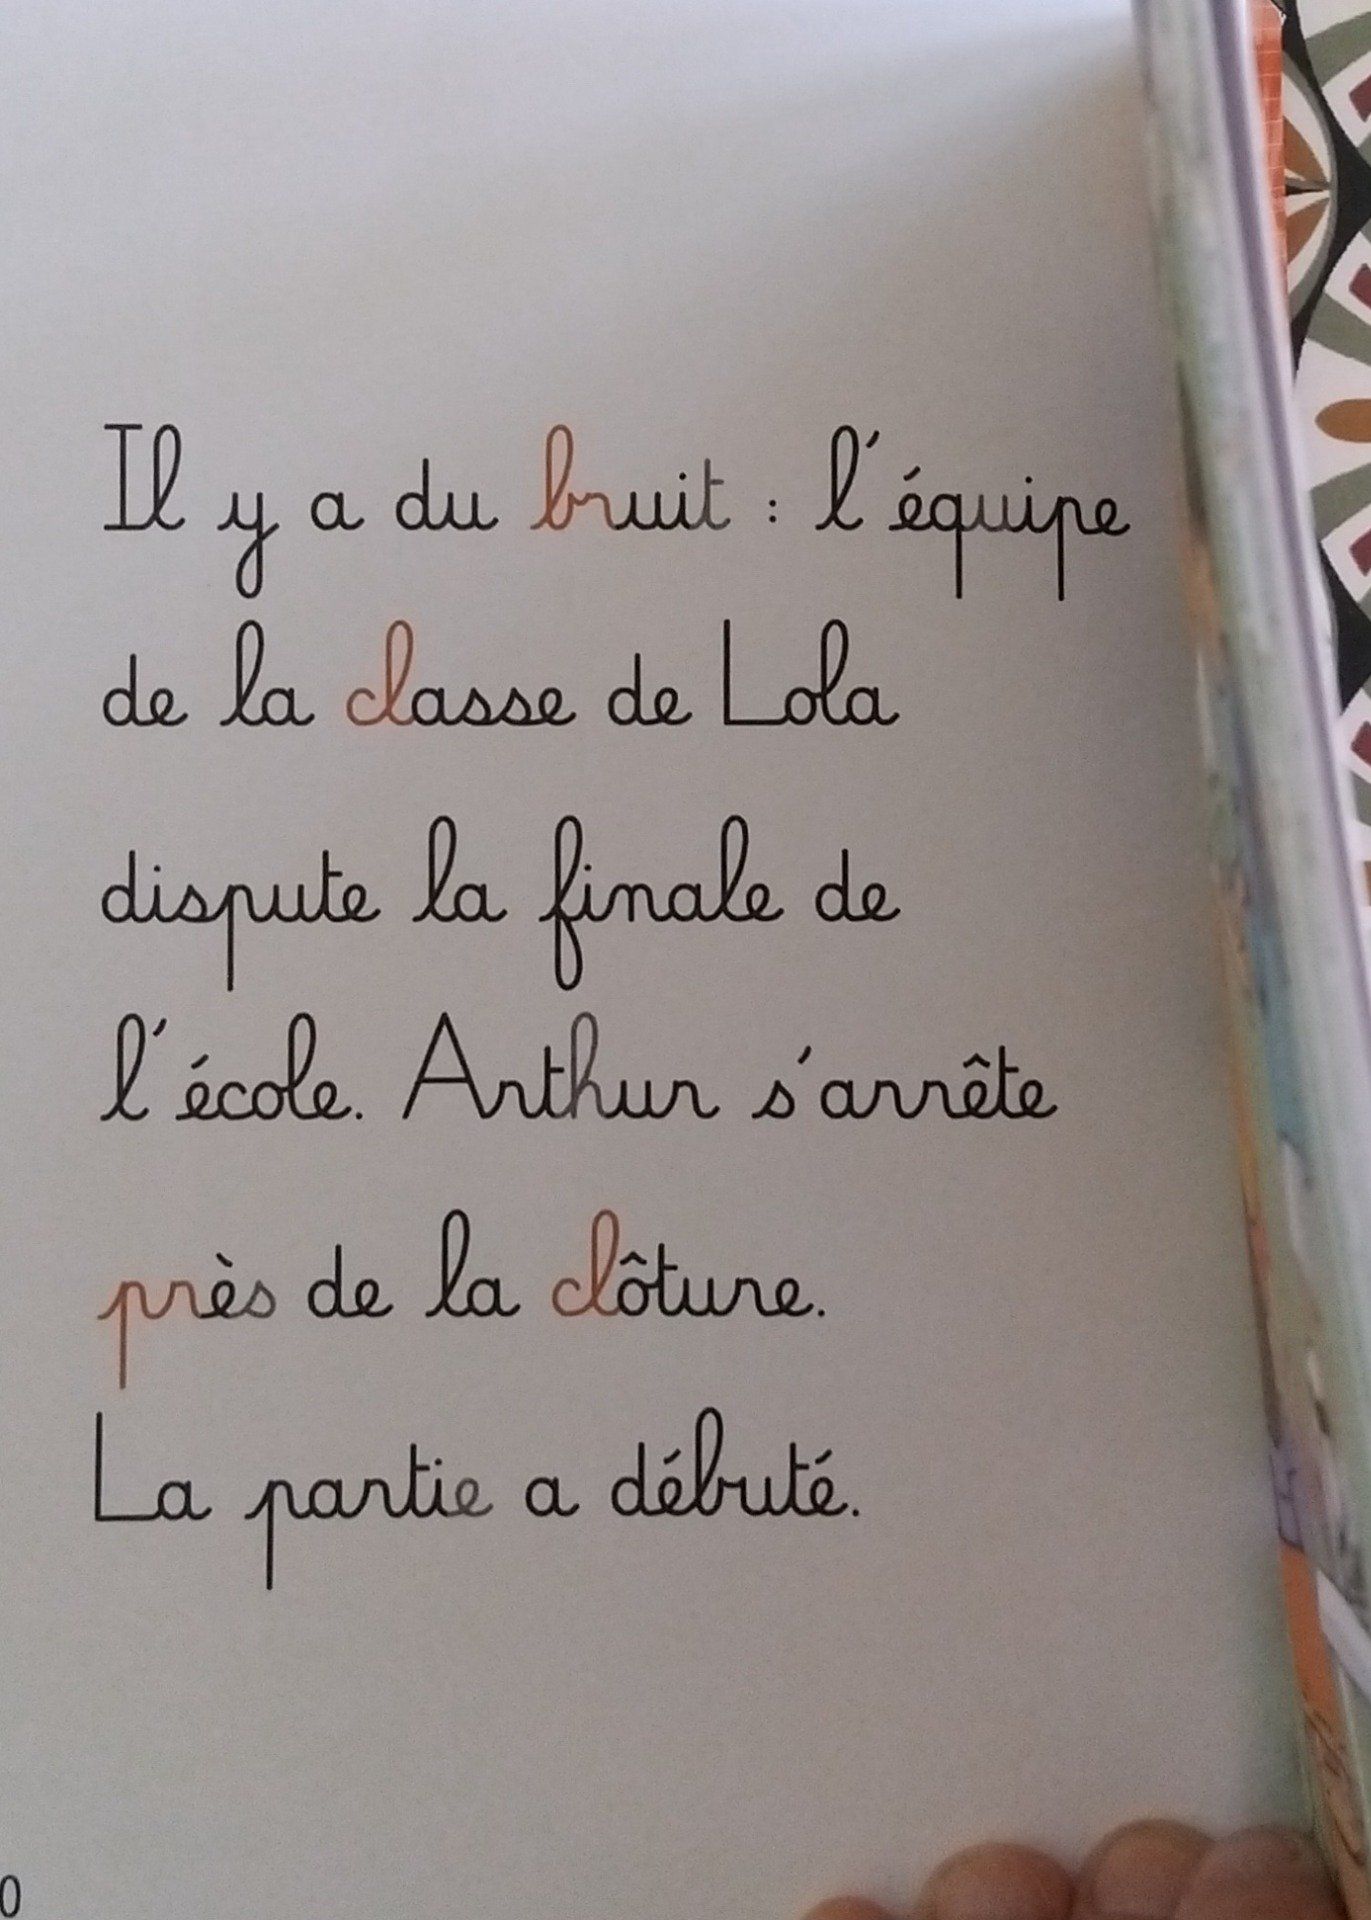 Il y a du bruit : l'équipe
de la classe de Lola
dispute la finale de
l'école. Arthur s'arrête
près de la clôture.
La partie a débuté.
0